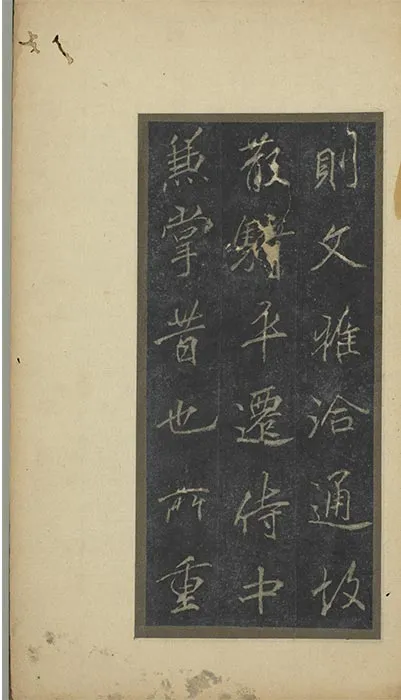 則文雅洽通故
散騎平遷侍中
兼掌昔也所重